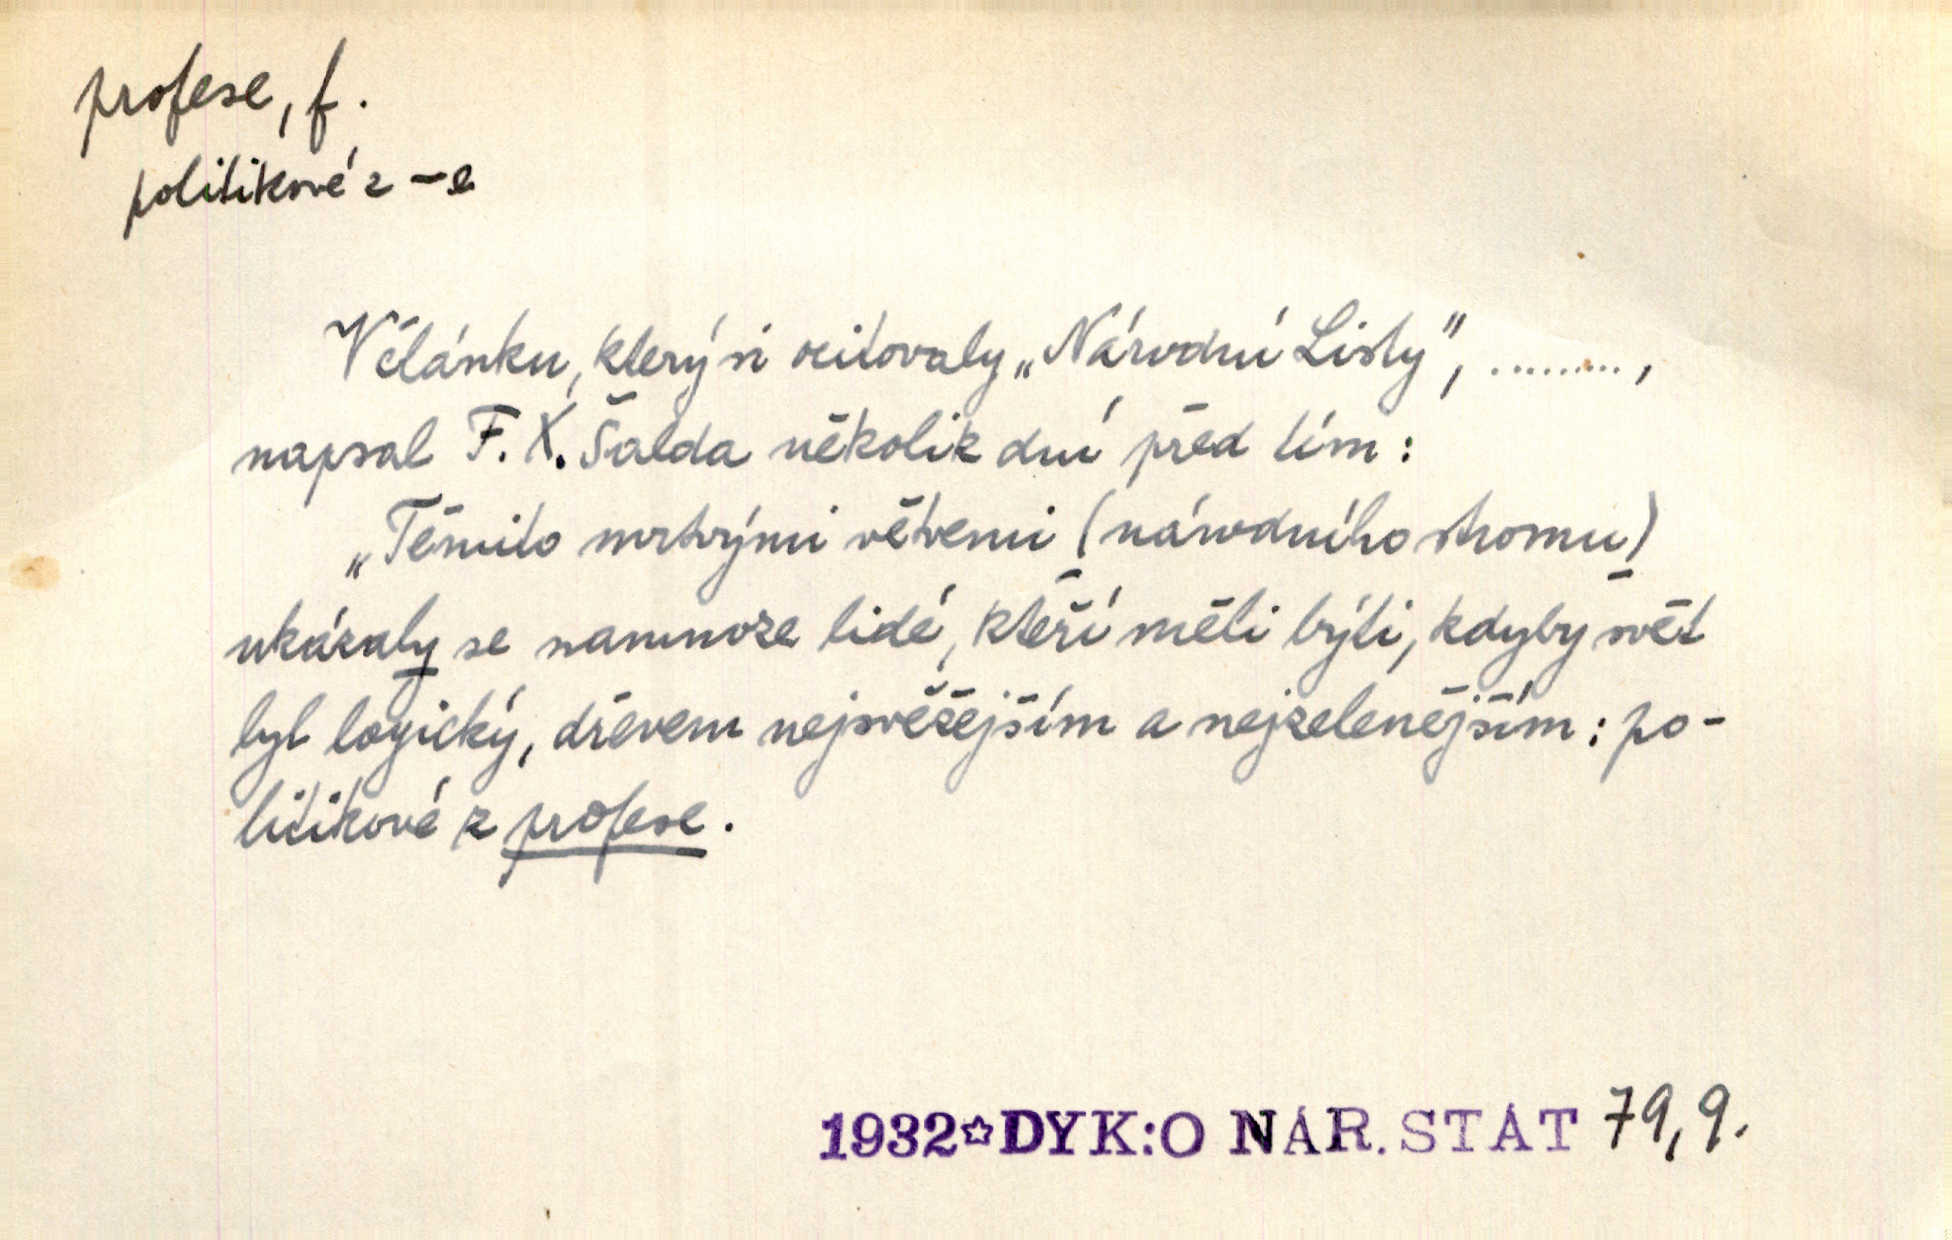 profese, f.
politikové z -e
V článku, který si ocitovaly „Národní Listy", ........,
napsal F. X. Šalda několik dní před tím:
„Těmito mrtvými větvemi (národního stromu)
ukázaly se namnoze lidé, kteří měli býti, kdyby svět
byl logický, dřevem nejsvěžejším a nejzelenějším: po-
litikové z profese.
1932☆DYK:O NÁR. STÁT 79,9.